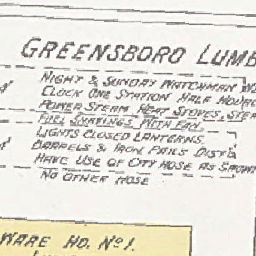 GREENSBORO LUMB
NIGHT & SUNDAY WATCHMAN W
CLOCK ONE STATION HALF HOUR
POWER STEAM, HEAT STOVES, STE
FUEL SHAVINGS WITH FAN.
LIGHTS CLOSED LANTERNS.
BARRELS & IRON PAILS DISTB
HAVE USE OF CITY HOSE AS SHOWN
NO OTHER HOSE
WARE HO. No 1.